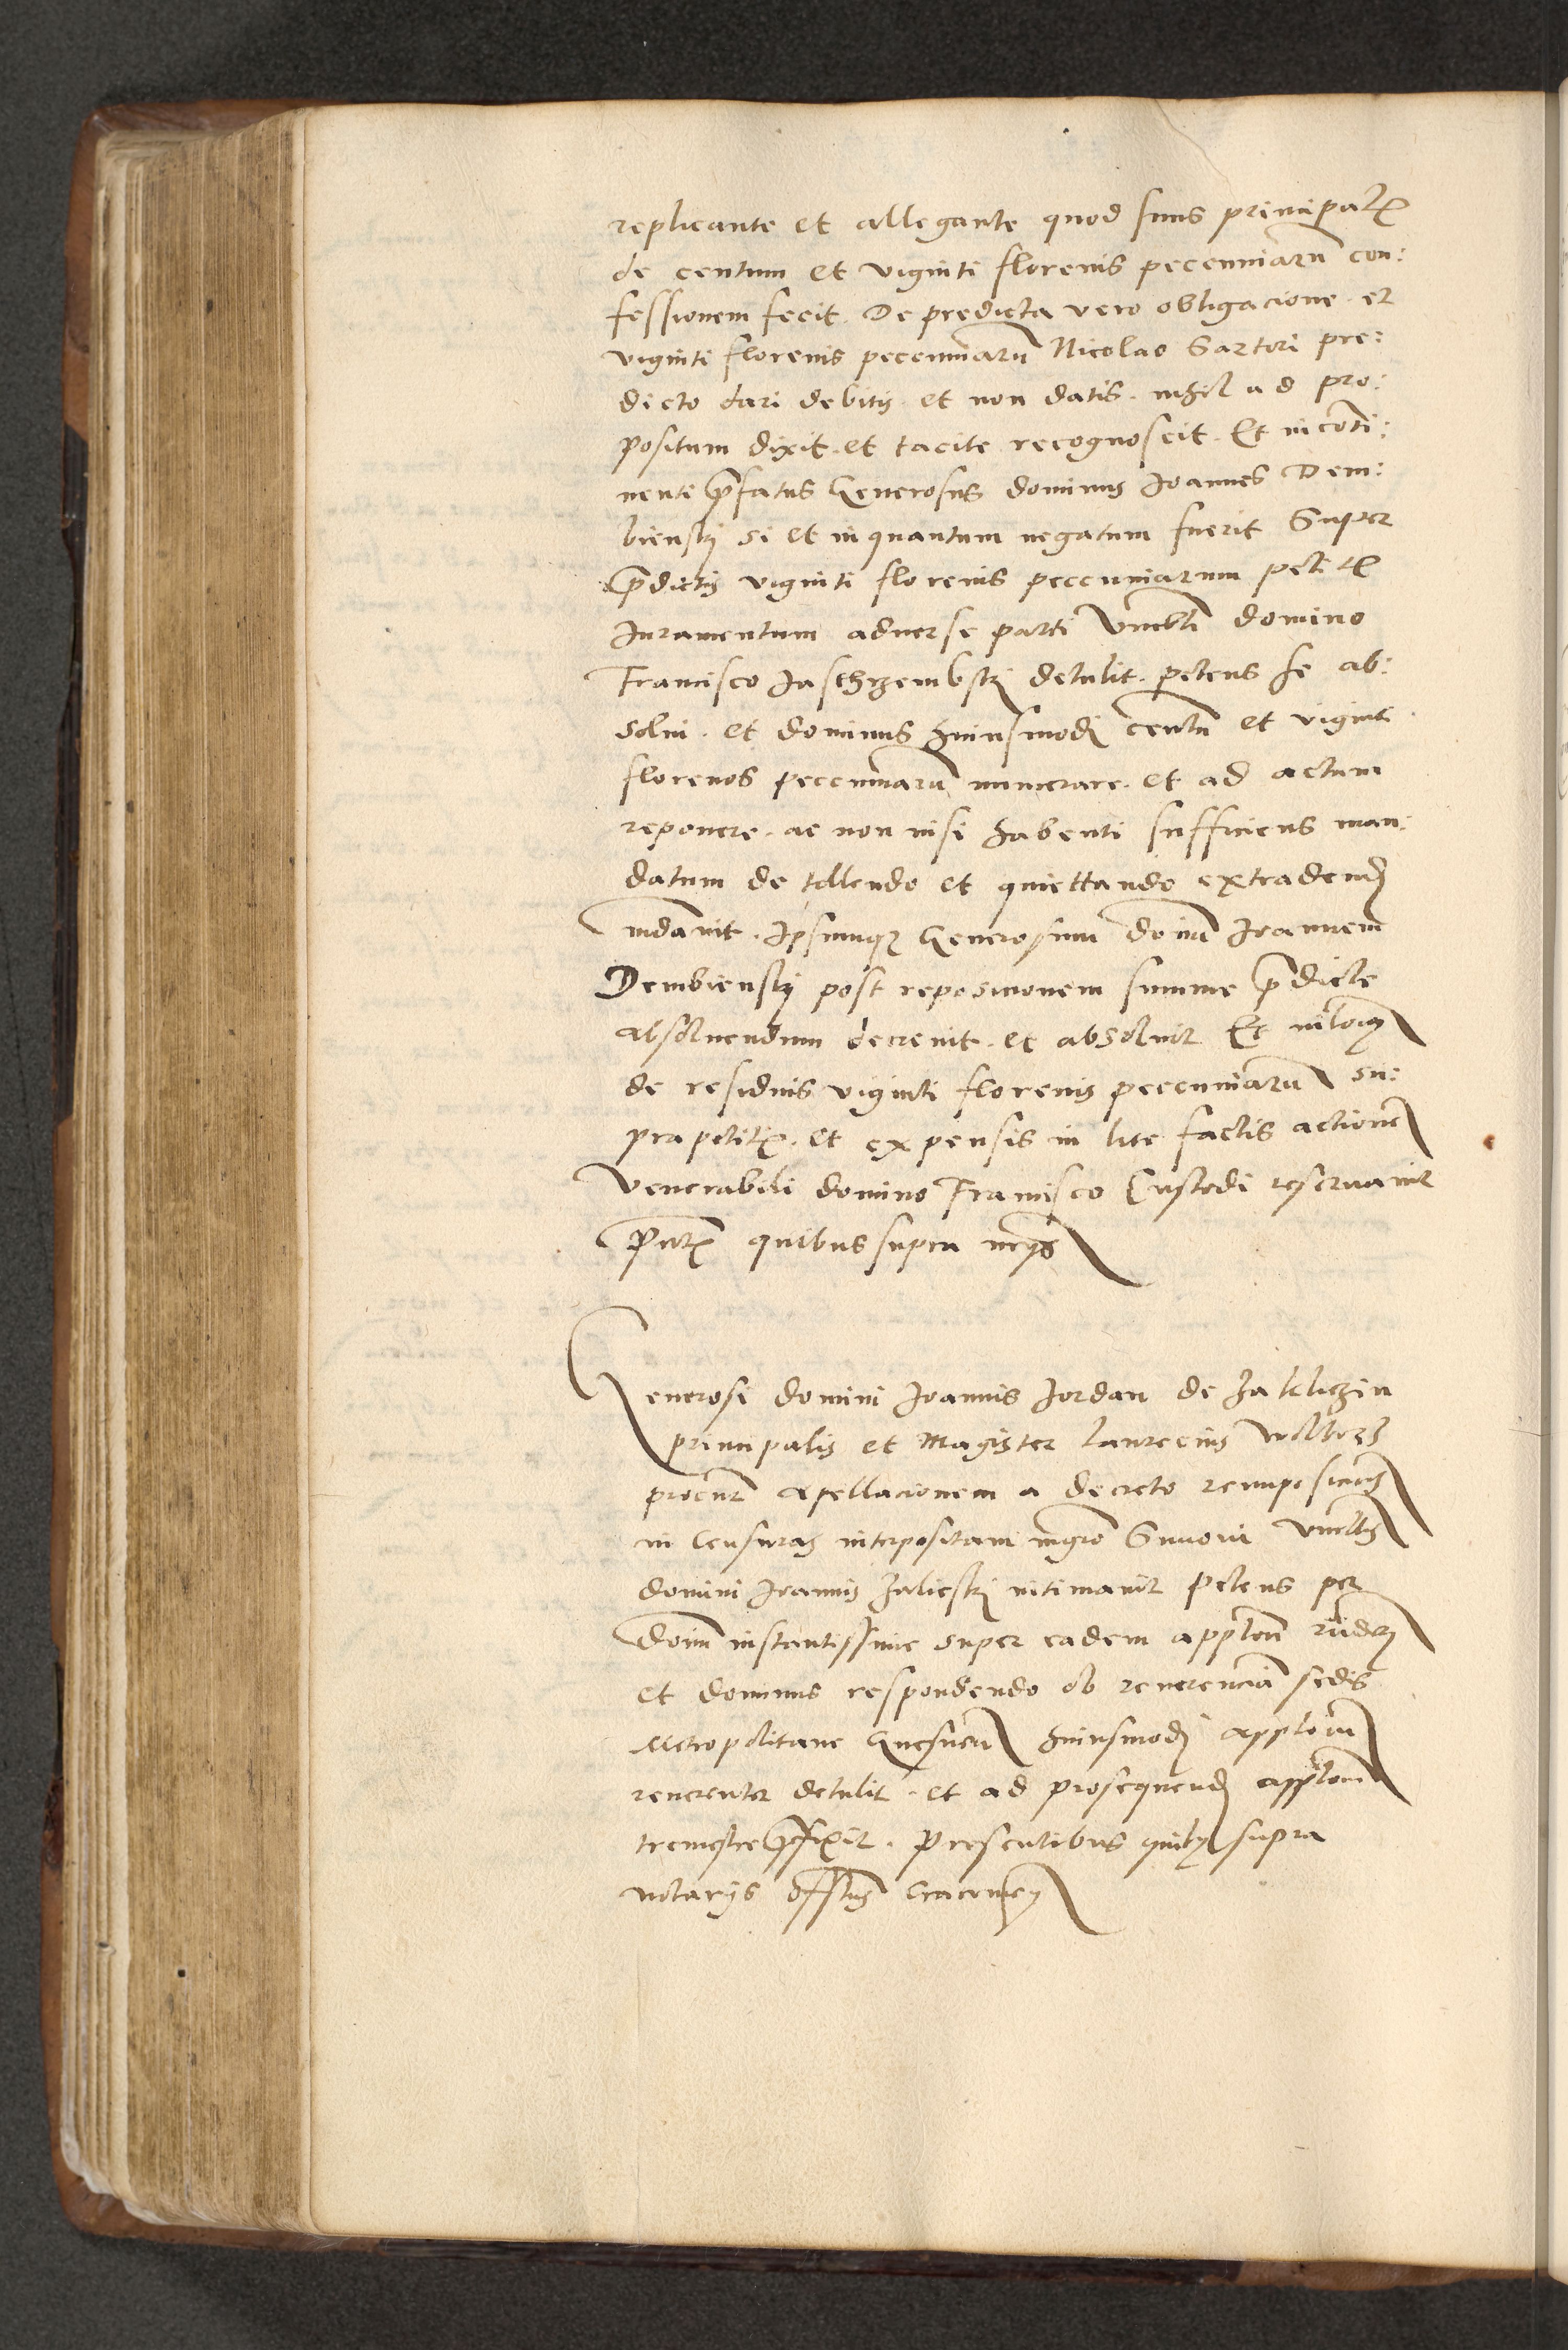 replicante et allegante quod suus principał
de centum et viginti florenis peccuniarū con:
fessionem fecit. De predicta vero obligacione et
viginti florenis peccuniarū Nicolao Sartori pre:
dicto dari debitis et non datis. nihil ad pro:
positum dixit. et tacite recognoscit. Et in conti:
nenti p̄fatus Generosus dominus Joannes Dem:
biensky si et in quantum negatum fuerit Super
p̄dictis viginti florenis peccuniarum petit
Juramentum adverse parti Vnebłi domino
Francisco Jaschzembsky detulit. petens se ab:
solui. et dominus huiusmodi centū et viginti
florenos peccuniarū numerare. et ad actum
reponere. ac non nisi habenti sufficiens man:
datum de tollendo et quiettando extradend
mdavit. Ipsumqz Generosum doīm Joannem
Dembiensky post reposicionem summe p̄dicte
absoluendum decrevit. et absoluit Et nıłoıꝯ
de residuis viginti florenis peccuniarū su:
pra petitis. et expensis in lite factis actionē
Venerabili domino Francisco Custodi reservavit
Pnt̄ quibus supra nrijs
Generosi domini Joannis Jordan de Zakliczin
principalis et Magister Laurecius Wolborz
procur̄ apellacionem a decreto reimposicōis
in Censuras interpositam mgr̄o Simoni Vnebłis
domini Joannis Zaliesky intimavit petens per
doīm instantissime super eadem appłonē r̄nderi
et dominus respondendo ob reverenciā sedis
Metropolitane Gnesnen huiusmodi appłoni
reverenter detulit. et ad prosequend appłonē
tremestre p̄fixit. Presentibus quibꝯ supra
notarijs Offłus Cracovien